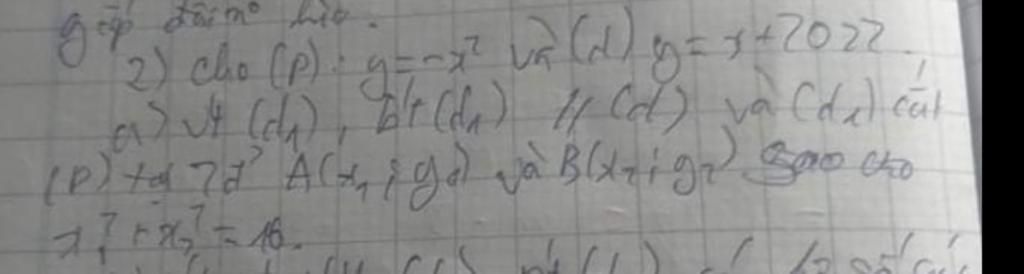 gấp đôi
2) cho (P): y=-x² và (d) y=x+2022.
a) vt (d₁), bt (d₁) // (d) và (d₁) cắt
(P) tại 2 đ' A(x₁; y₁) và B(x₂; y₂) sao cho
x₁² + x₂² = 16.